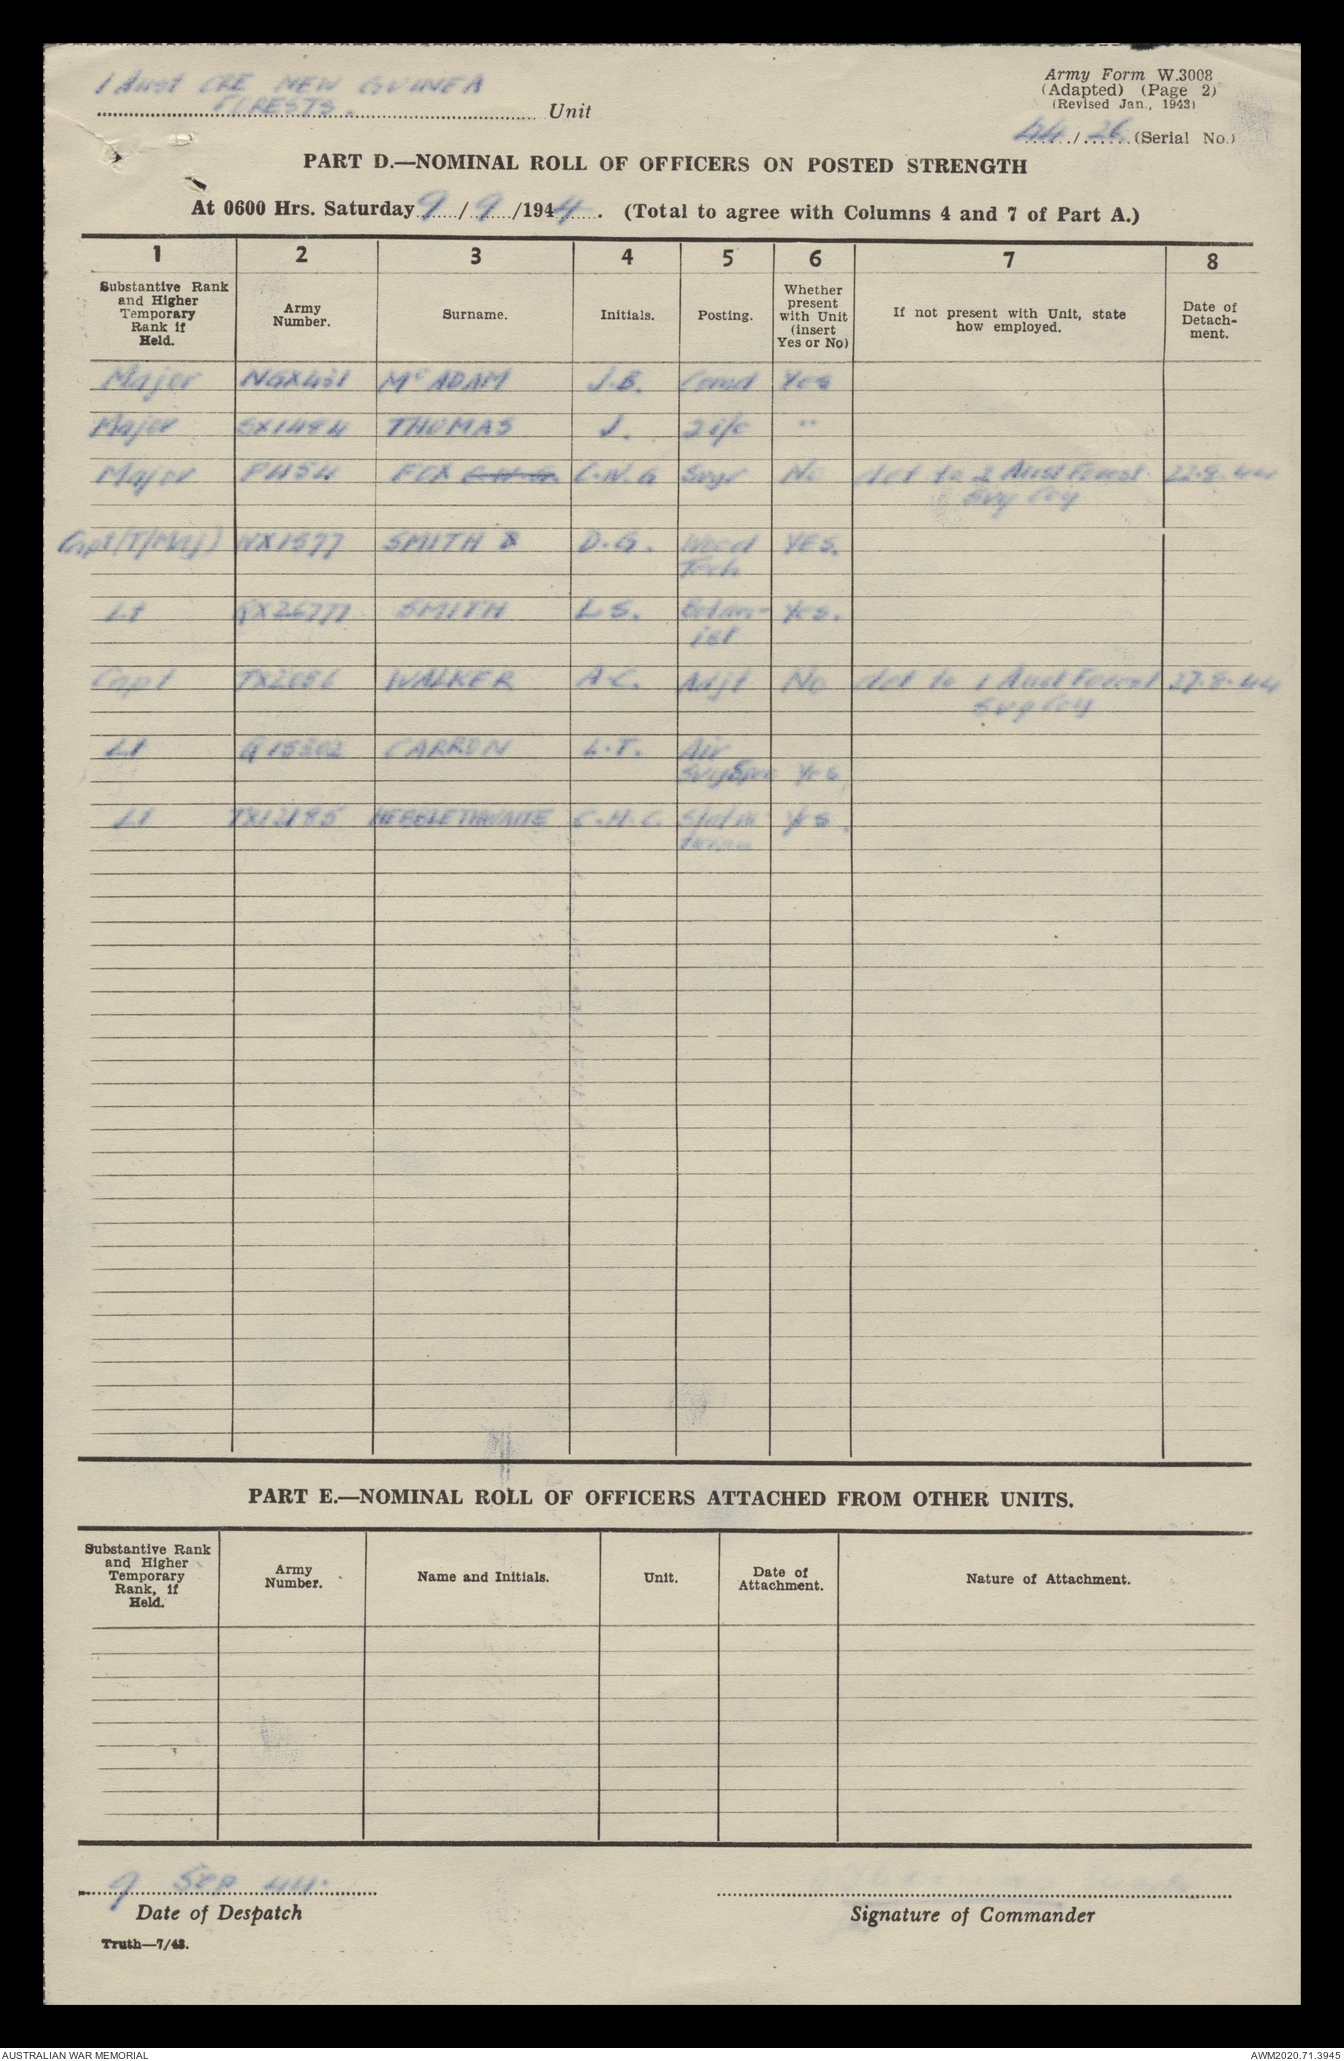 1 Aust CRE NEW GUINEA
FORESTS.
Unit
Army Form W.3008
(Adapted) (Page 2)
(Revised Jan., 1943)
44/26 (Serial No.)
PART D.—NOMINAL ROLL OF OFFICERS ON POSTED STRENGTH
At 0600 Hrs. Saturday 9/9/1944. (Total to agree with Columns 4 and 7 of Part A.)
1 2 3 4 5 6 7 8
Substantive Rank and Higher Temporary Rank if Held. Army Number. Surname. Initials. Posting. Whether present with Unit (insert Yes or No) If not present with Unit, state how employed. Date of Detach-ment.
Major NGX431 McADAM J.B. Comd Yes
Major SX1494 THOMAS J. 2i/c "
Major P454 FOX C.W.G. C.W.G Svyr No det to 2 Aust Forest 22.8.44
Svy Coy
Capt(T/Maj) NX1577 SMITH D.G. Wood YES.
Tech
Lt QX26777 SMITH L S. Botan- Yes.
ist
Capt WALKER A.C. Adjt No det to 1 Aust Forest 27.8.44
Svy Coy
Lt CARRON L.T. Air
Svy Spec Yes
Lt TX12185 HEBBLETHWAITE C.H.C. Yes.
PART E.—NOMINAL ROLL OF OFFICERS ATTACHED FROM OTHER UNITS.
Substantive Rank and Higher Temporary Rank, if Held. Army Number. Name and Initials. Unit. Date of Attachment. Nature of Attachment.
9 Sep 44.
Date of Despatch
Signature of Commander
Truth—7/43.
AUSTRALIAN WAR MEMORIAL
AWM2020.71.3945